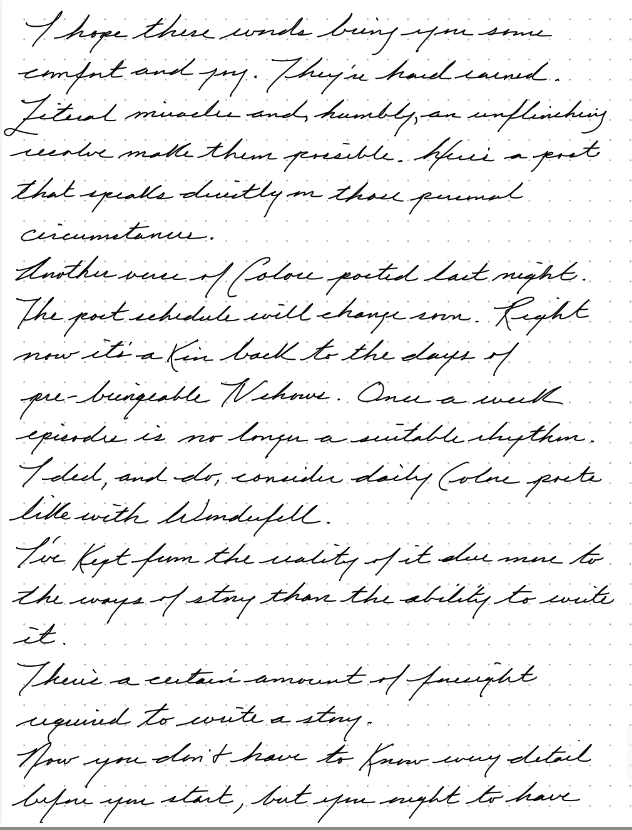 I hope these words bring you some
comfort and joy. They're hard earned.
Literal miracles and, humbly, an unflinching
resolve make them possible. Here's a post
that speaks directly on those personal
circumstances.
Another verse of Colore posted last night.
The post schedule will change soon. Right
now it's a Kin back to the days of
pre-bingeable TV shows. Once a week
episodes is no longer a suitable rhythm.
I did, and do, consider daily Colore posts
like with Wonderfell.
I've Kept from the reality of it due more to
the ways of story than the ability to write
it.
There's a certain amount of foresight
required to write a story.
Now you don't have to Know every detail
before you start, but you ought to have